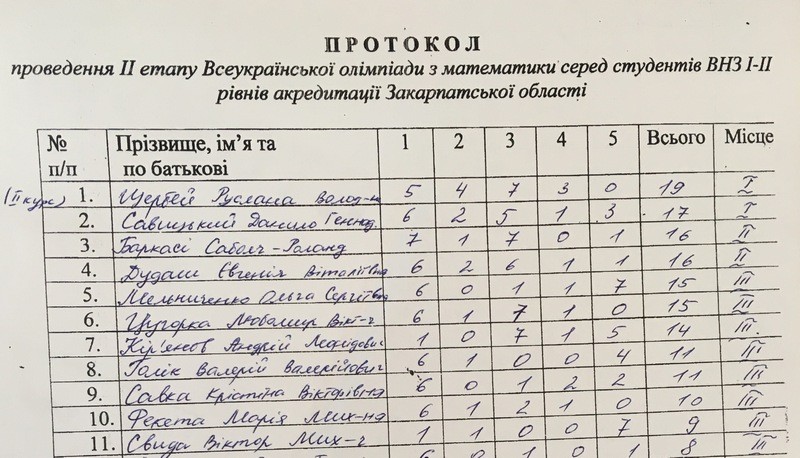 ПРОТОКОЛ
проведення II етапу Всеукраїнської олімпіади з математики серед студентів ВНЗ I-II
рівнів акредитації Закарпатської області
№ п/п Прізвище, ім’я та по батькові 1 2 3 4 5 Всього Місце
(II курс) 1. Щербей Руслана Волод-на 5 4 7 3 0 19 I
2. Савицький Данило Геннад. 6 2 5 1 3 17 I
3. Баркасі Саболч-Роланд 7 1 7 0 1 16 II
4. Дудаш Євгенія Віталіївна 6 2 6 1 1 16 II
5. Мельниченко Ольга Сергіївна 6 0 1 1 7 15 III
6. Цугорка Любомир Вікт-ч 6 1 7 1 0 15 III
7. Кір'янов Андрій Леонідович 1 0 7 1 5 14 III
8. Голік Валерій Валерійович 6 1 0 0 4 11 III
9. Савка Крістіна Вікторівна 6 0 1 2 2 11 III
10. Фекета Марія Мих-на 6 1 2 1 0 10 III
11. Свида Віктор Мих-ч 1 1 0 0 7 9 III
6 0 1 0 1 8 III